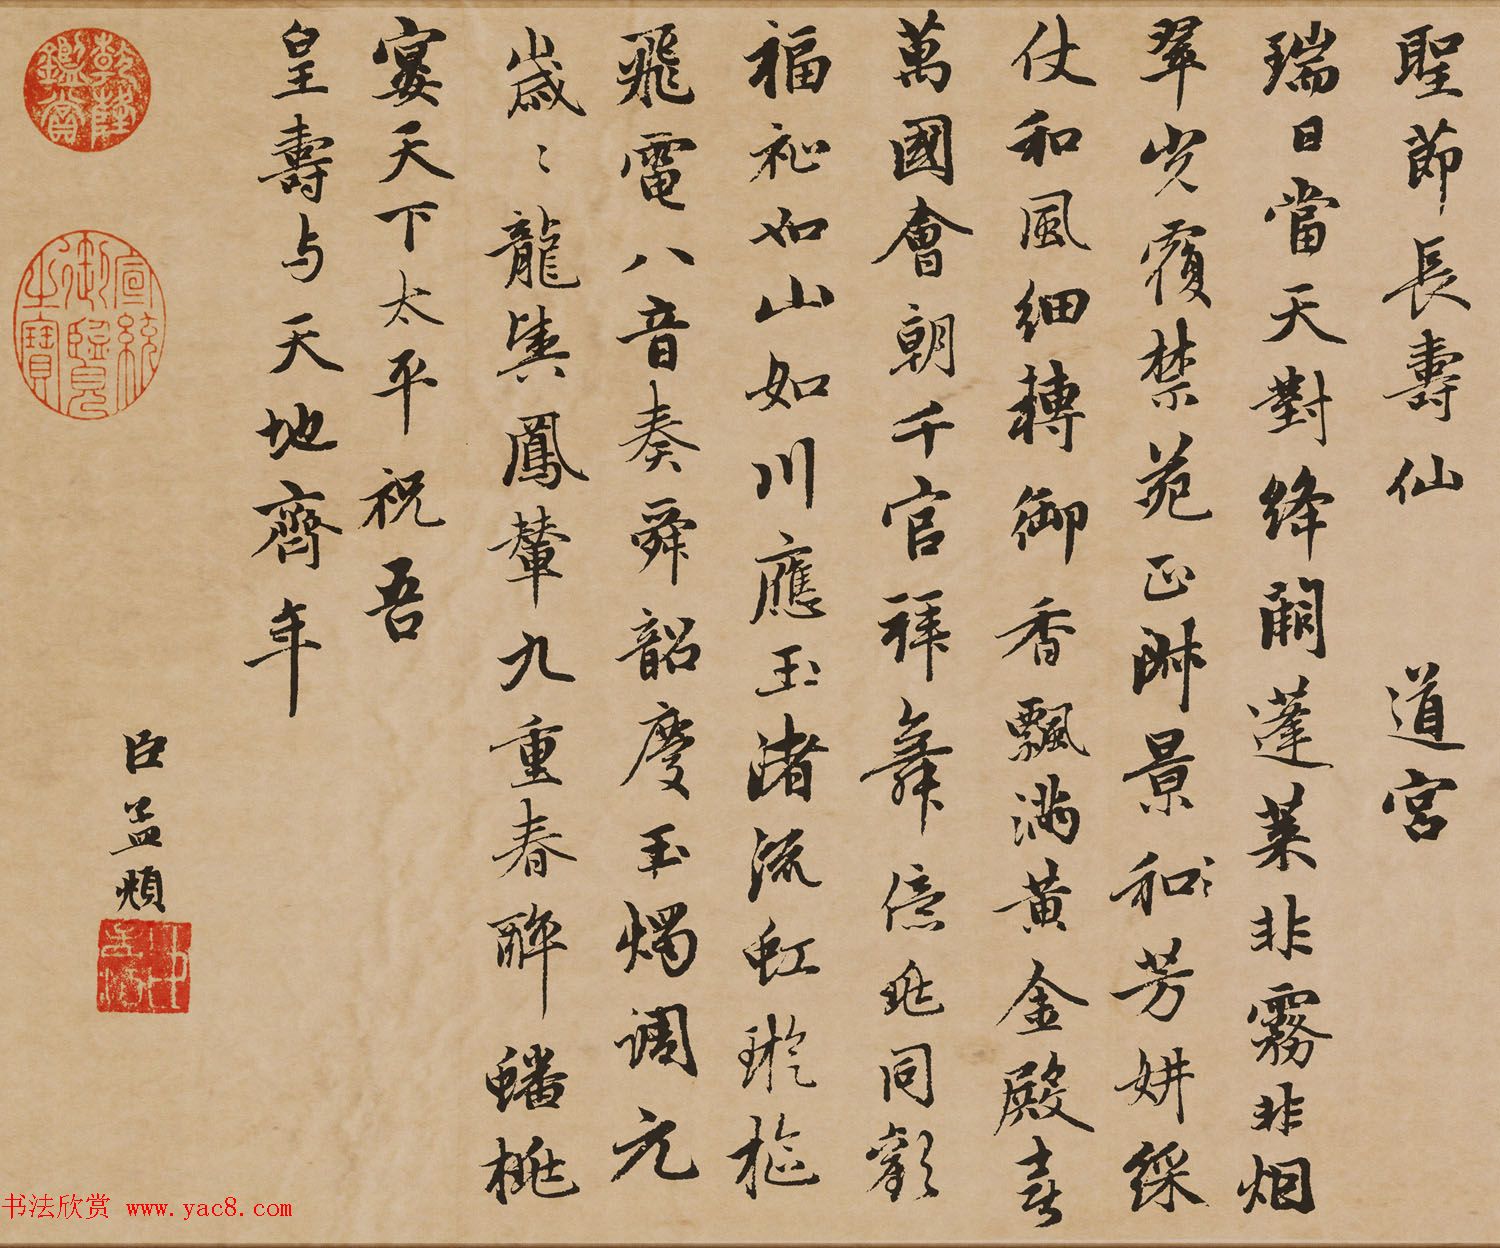 聖節長壽仙 道宮
瑞日當天對絳闕蓬萊非霧非烟
翠光覆禁苑正淋景和芳妍綵
仗和風細轉御香飄滿黃金殿喜
萬國會朝千官拜舞億兆同歡
福祉如山如川應玉渚流虹璇樞
飛電八音奏舜韶慶玉燭調元
歲〻龍輿鳳輦九重春醉蟠桃
宴天下太平祝吾
皇壽与天地齊年
臣孟頫
乾隆鑑賞
宣統御覽之寶
书法欣赏 www.yac8.com